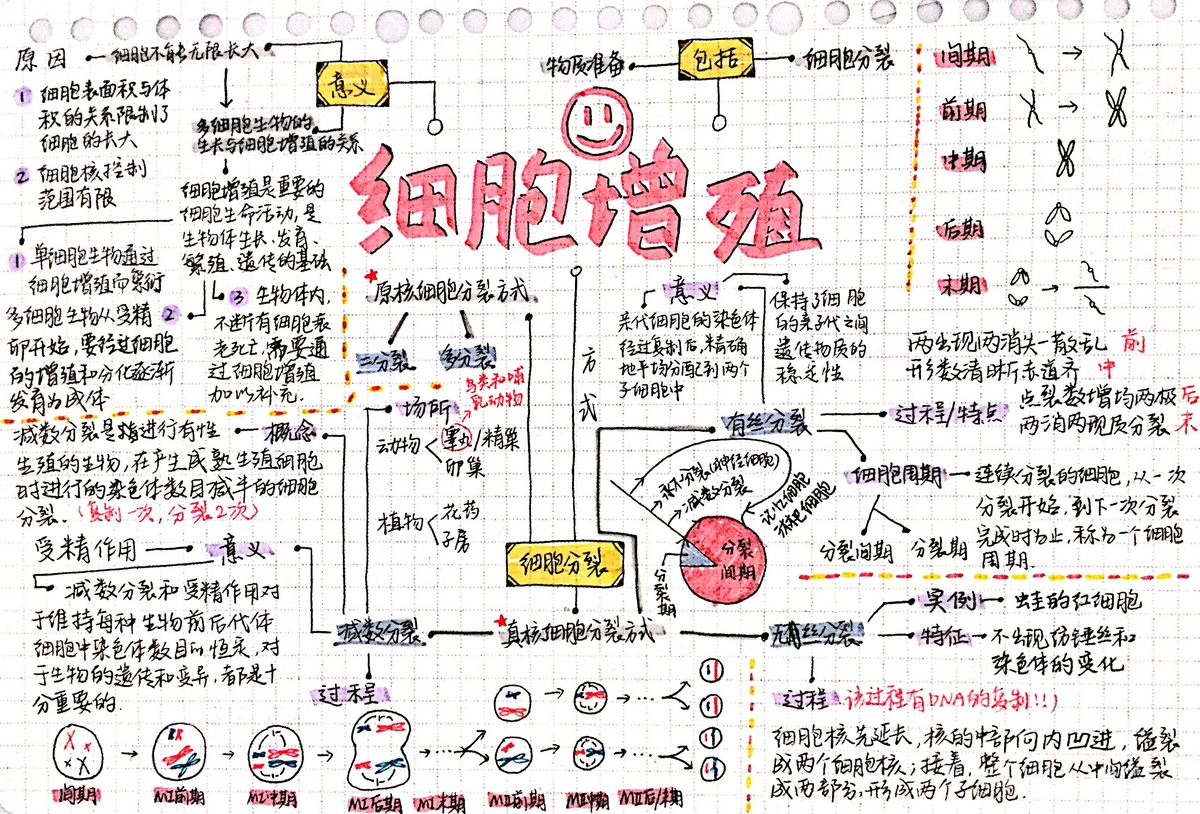 细胞增殖
原因
细胞不能无限长大
意义
① 细胞表面积与体
积的关系限制了
细胞的长大
② 细胞核控制
范围有限
多细胞生物的
生长与细胞增殖的关系
细胞增殖是重要的
细胞生命活动,是
生物体生长、发育、
繁殖、遗传的基础
① 单细胞生物通过
细胞增殖而繁衍
多细胞生物从受精 ②
卵开始,要经过细胞
的增殖和分化逐渐
发育为成体
③ 生物体内,
不断有细胞衰
老死亡,需要通
过细胞增殖
加以补充.
物质准备
包括
细胞分裂
间期
前期
中期
后期
末期
两出现两消失一散乱 前
形数清晰赤道齐 中
点裂数增均两极 后
两消两现质分裂 末
★原核细胞分裂方式
二分裂
多分裂
方式
意义
亲代细胞的染色体
经过复制后,精确
地平均分配到两个
子细胞中
保持了细胞
的亲子代之间
遗传物质的
稳定性
有丝分裂
过程/特点
细胞周期
连续分裂的细胞,从一次
分裂开始,到下一次分裂
完成时为止,称为一个细胞
周期.
分裂间期
分裂期
永不分裂(神经细胞)
减数分裂
记忆细胞
淋巴细胞
分裂
间期
分裂期
场所
鸟类和哺
乳动物
动物
睾丸/精巢
卵巢
植物
花药
子房
概念
减数分裂是指进行有性
生殖的生物,在产生成熟生殖细胞
时进行的染色体数目减半的细胞
分裂.(复制一次,分裂2次)
受精作用
意义
减数分裂和受精作用对
于维持每种生物前后代体
细胞中染色体数目的恒定,对
于生物的遗传和变异,都是十
分重要的.
细胞分裂
减数分裂
★真核细胞分裂方式
无丝分裂
实例
蛙的红细胞
特征
不出现纺锤丝和
染色体的变化
过程
该过程有DNA的复制!!)
细胞核先延长,核的中部向内凹进,缢裂
成两个细胞核;接着,整个细胞从中间缢裂
成两部分,形成两个子细胞.
过程
间期
MI前期
MI中期
MI后期
MI末期
MII前期
MII中期
MII后/末期